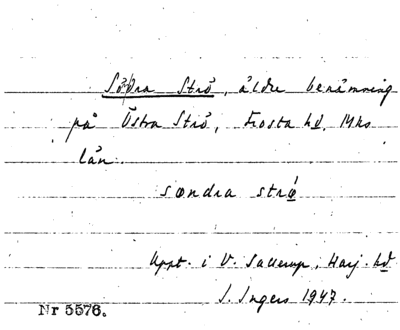 Södra Strö, äldre benämning
på Östra Strö, Frosta hd, Mhs
län.
sœndra strö
Uppt. i V. Sallerup, Harj. hd
I. Ingers 1947.
Nr 5576.